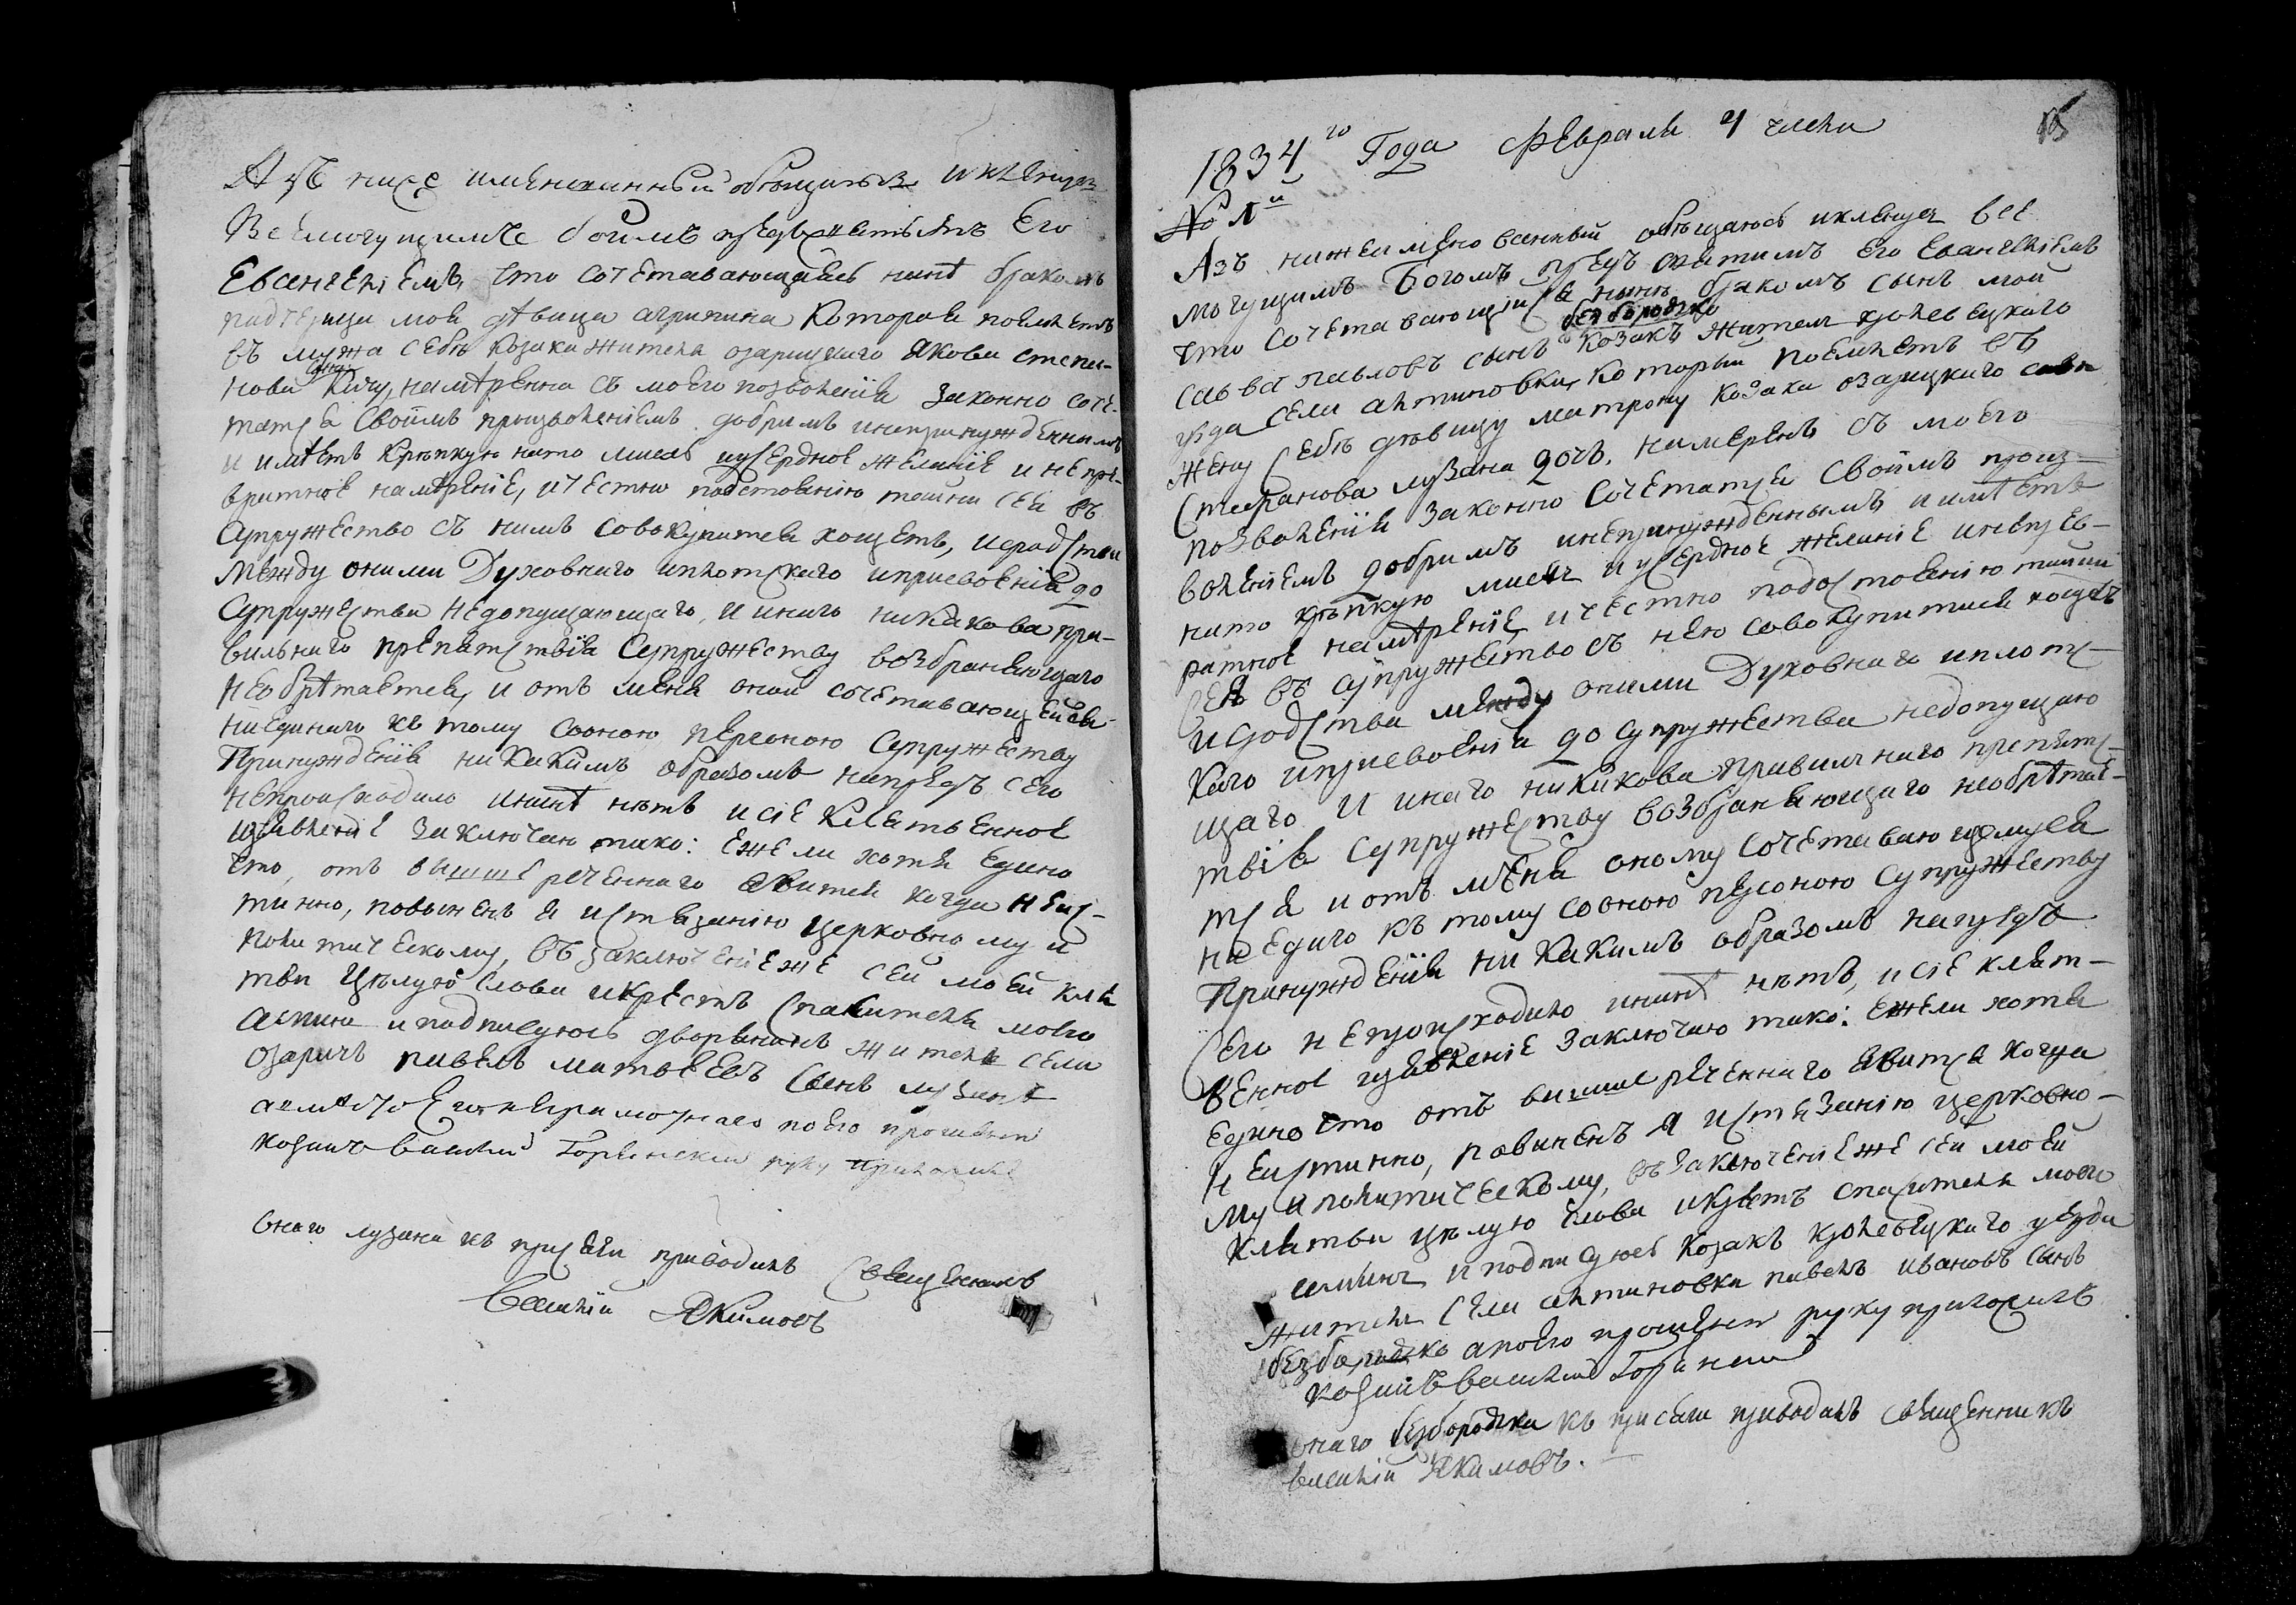 Азъ ниже именованный обещаюсь и клянусь
Всемогущимъ богомъ предъ святымъ Его
Евангелиемъ, что сочетавающаяся нинѣ бракомъ
падчерица моя дѣвица агрипина Которая поемлетъ
въ мужа себѣ козака жителя озарицкого Якова степа-
нова сина, намѣренна съ моего позволенія законно соче-
татся своимъ произволеніемъ добримъ и непринужденнимъ
и имѣетъ крѣпкую на то мисль и усердное желаніе и непре-
вратное намѣреніе, и честно по достоянію тайни сей въ
Супружество съ нимъ совокупитися хощетъ, и сродства
Между оними Духовнаго и плотскаго и присвоенія до
Супружества недопущающаго, и инаго никакова пра-
вильнаго препятствія Супружеству возбраняющаго
необрѣтается, и отъ меня оной сочетавающейся
ниединаго къ тому соною персоною Супружеству
Принужденія ни Какимъ образомъ напредъ сего
непроисходило и нинѣ нѣтъ и сіе Клятвенное
изявленіе заключаю тако: ежели хотя едино
что, отъ вышшереченнаго явится когда неис-
тинно, повиненъ я истязанію церковному и
политическому, въ заключеніе же сей моей кля
тви Цѣлую слова и крестъ спасителя моего
Аминь и подписуюсь дворянинъ житель села
озаричъ павелъ матвеевъ синъ лузанъ
а вмѣсто Его неграмотнаго по его прошенію
козакъ василий Горянский руку приложилъ
Онаго лузана къ присяги приводилъ Священникъ
Василій Якимовъ
1834го Года Февраля 4 числа
№ 1й
Азъ нижеименованный обѣщаюсь и клянусь все
могущимъ Богомъ предъ святимъ Его Евангеліемъ
что сочетавающійся нынѣ бракомъ синъ мой
безбородко
савва павловъ синъ козакъ житель кролевецкого
уезда села алтиновки, который поемлетъ въ
жену себѣ девицу матрону козака озарицкого савы
Стефанова лузана дочь. намеренъ съ моего
позволенія законно сочетатся Своимъ произ-
воленіемъ добримъ и непринужденнымъ и имѣетъ
на то крѣпкую мисль и усердное желаніе и непрев-
ратное намѣреніе, и честно по достоянію тайни
сея въ супружество съ нею совокупитися хощетъ
и сродства между оними Духовнаго и плотс-
каго и присвоенія до супружества недопущаю
щаго и инаго никакова правилнаго препятс-
твія супружеству возбраняющаго необрѣтае-
тся и отъ мѣня оному сочетавающемуся
не едиго къ тому соною персоною супружеству
Принужденія ни какимъ образомъ напредъ
Сего непроисходило и нинѣ нѣтъ, и сіе клят-
венное изявленіе заключаю тако: ежели хотя
едино что отъ вишшереченнаго явится когда
неистинно, повиненъ я истязанію церковно-
му и политическому, въ заключеніе же сей моей
клятви цѣлую слова и крестъ спасителя моего
аминь и подписуюсь козакъ кролевецкаго уезда
житель села алтиновки павелъ ивановъ синъ
безбородко а по его прошенію руку приложилъ
козакъ василий Горянский
онаго безбородка къ присяги приводилъ священникъ
василій Якимовъ.